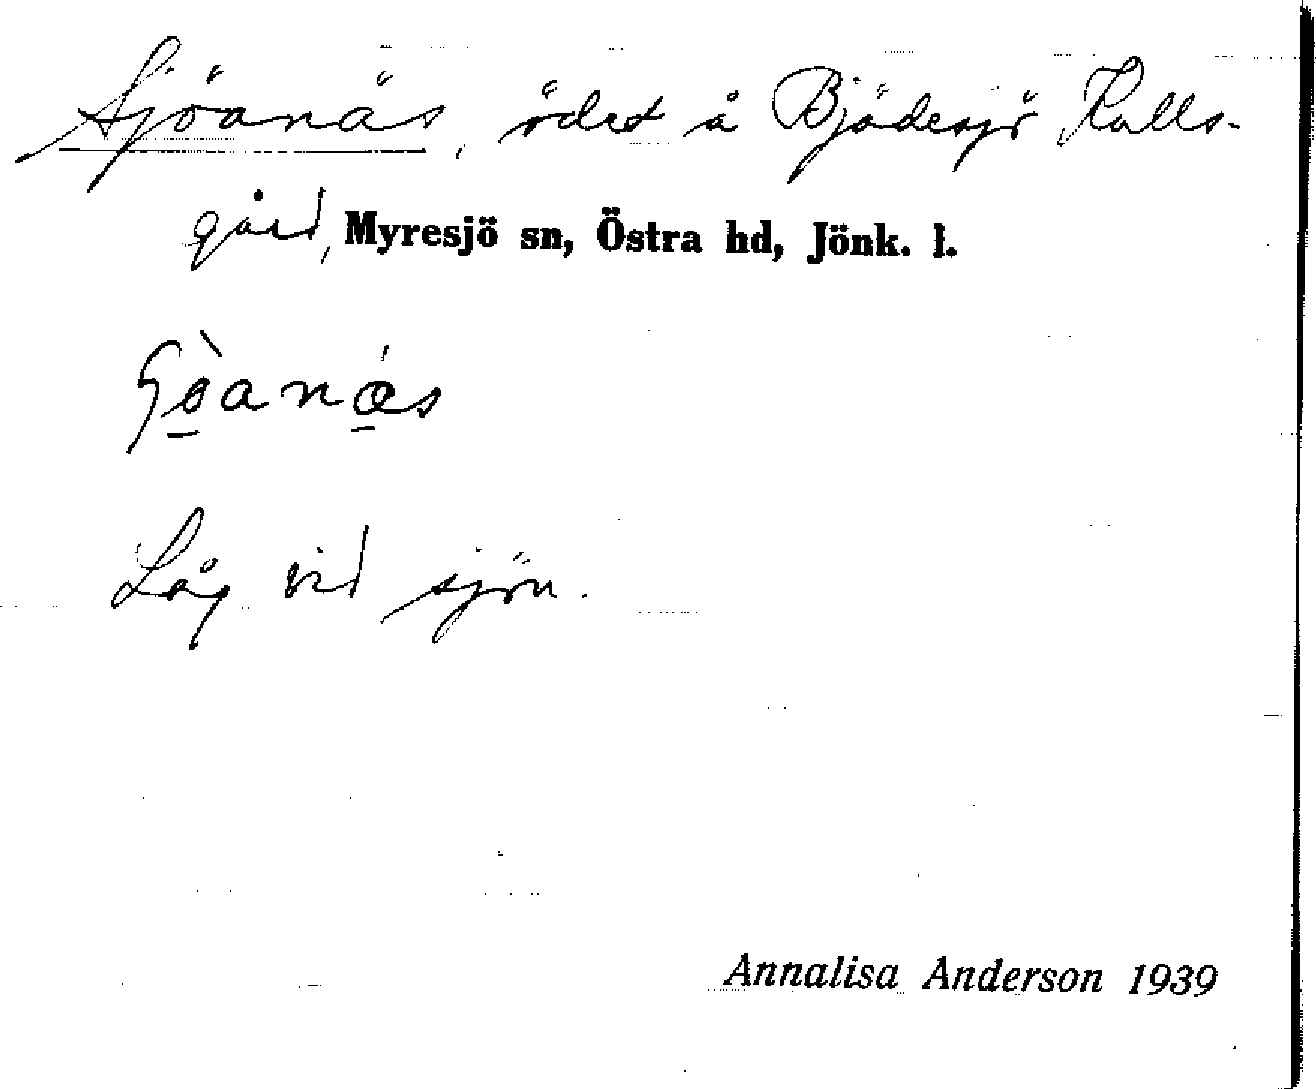 Sjöanäs, ödet å Bjädesjö Kalls-
gård, Myresjö sn, Östra hd, Jönk. l.
Låg vid sjön.
Annalisa Anderson 1939